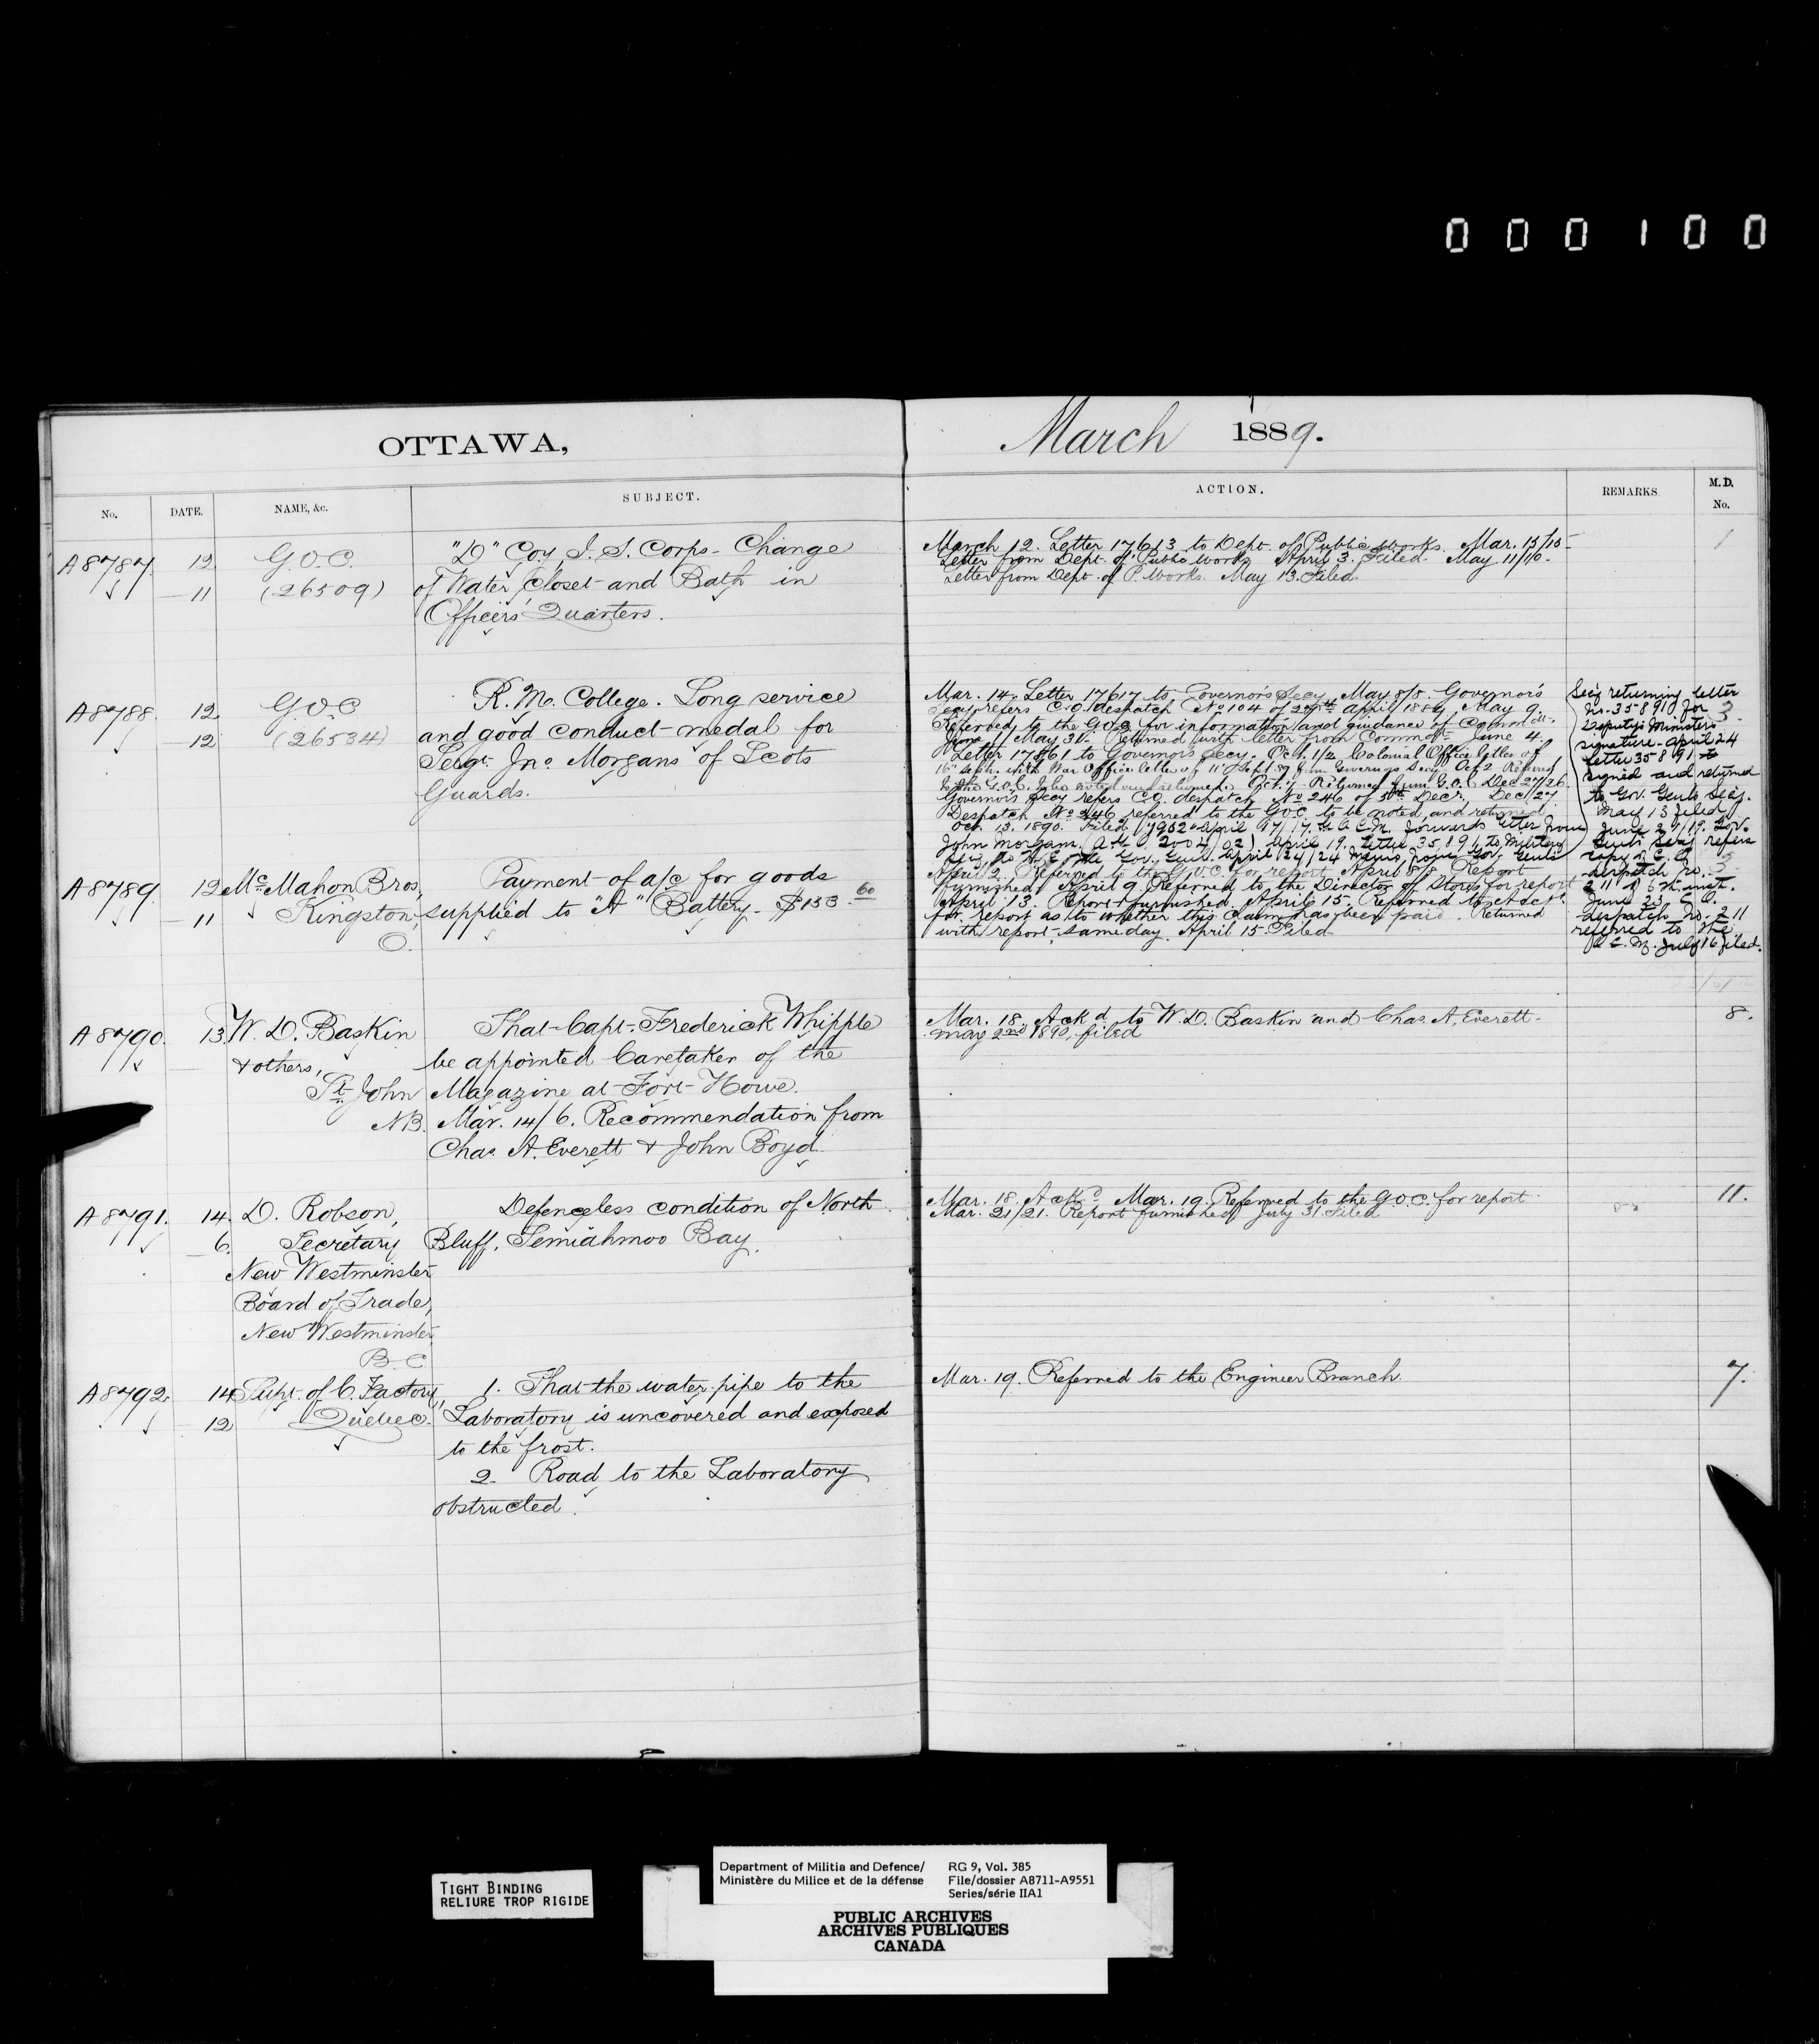 000100
OTTAWA,
March 1889.
No. DATE. NAME, &c. SUBJECT.
ACTION. REMARKS. M.D. No.
A8787 12 G.O.C. "D" Coy I. S. Corps - Change
11 (26509) of Water Closet and Bath in
Officers' Quarters.
March 12. Letter 17613 to Dept. of Public Works. Mar. 15/15
Letter from Dept. of Public Works April 3. Filed. May 11/10.
Letter from Dept. of P. Works. May 13. Filed.
1
A8788 12 G.O.C R. M. College. Long service
12 (26534) and good conduct medal for
Sergt. Jno. Morgans of Scots
Guards.
Mar. 14. Letter 17617 to Governor's Secy. May 8/8. Governor's
Secy. refers C.O. despatch No 104 of April 1889. May 9.
Referred to the G.O.C. for information and guidance of Commdt.
June 1/May 31. Returned with letter from Commdt. June 4.
Letter 17861 to Governor's Secy. Oct. 1/2 Colonial Office letter of
16" Sept. with War Office letter of 11 Sept.
to be noted and returned. Returned from G.O.C. Dec 27/26
Governor's Secy refers C.O. despatch No 246 of 5th Decr. Dec. 27
Despatch No 246 referred to the G.O.C. to be noted and returned
Oct. 13. 1890. Filed April 17/17. forwards letter from
John Morgan. April 19. Letter 35891 to Military
Secy. to H. E. the Gov. Genl. April 24/24 Memo from Gov. Genl's
Sec'y returning letter
No. 35891 for
Deputy Minister's
signature - April 24
Letter 35891
signed and returned
to Gov. Genl's Secy.
May 13 filed
June 21/19. Gov.
Genl's Secy refers
copy of C. O.
despatch No.
211 of 6th inst.
June 23. C. O.
despatch No. 211
referred to the
July 16 filed.
3
A8789 12 McMahon Bros, Payment of a/c for goods
11 Kingston, supplied to "A" Battery - $153.60
O.
April 2. Referred to the G.O.C. for report April 8/8. Report
furnished. April 9. Referred to the Director of Stores for report
April 13. Report furnished. April 15. Referred to Acct.
for report as to whether this claim has been paid. Returned
with report same day. April 15. Filed
3
A8790 13 W. D. Baskin That Capt. Frederick Whipple
& others, be appointed Caretaker of the
St. John Magazine at Fort Howe.
N.B. Mar. 14/6. Recommendation from
Chas. A. Everett & John Boyd.
Mar. 18. Ack'd to W. D. Baskin and Chas. A. Everett.
May 2nd 1890, filed
8.
A8791. 14. D. Robson, Defenceless condition of North
6. Secretary Bluff, Semiahmoo Bay.
New Westminster
Board of Trade,
New Westminster
B. C
Mar. 18. Ackd. Mar. 19. Referred to the G.O.C. for report
Mar. 21/21. Report furnished July 31. Filed
11.
A8792. 14 Supt. of C. Factory, 1. That the water-pipe to the
12 Quebec. Laboratory is uncovered and exposed
to the frost.
2. Road to the Laboratory
obstructed.
Mar. 19. Referred to the Engineer Branch.
7.
TIGHT BINDING
RELIURE TROP RIGIDE
Department of Militia and Defence/
Ministère du Milice et de la défense
RG 9, Vol. 385
File/dossier A8711-A9551
Series/série IIA1
PUBLIC ARCHIVES
ARCHIVES PUBLIQUES
CANADA